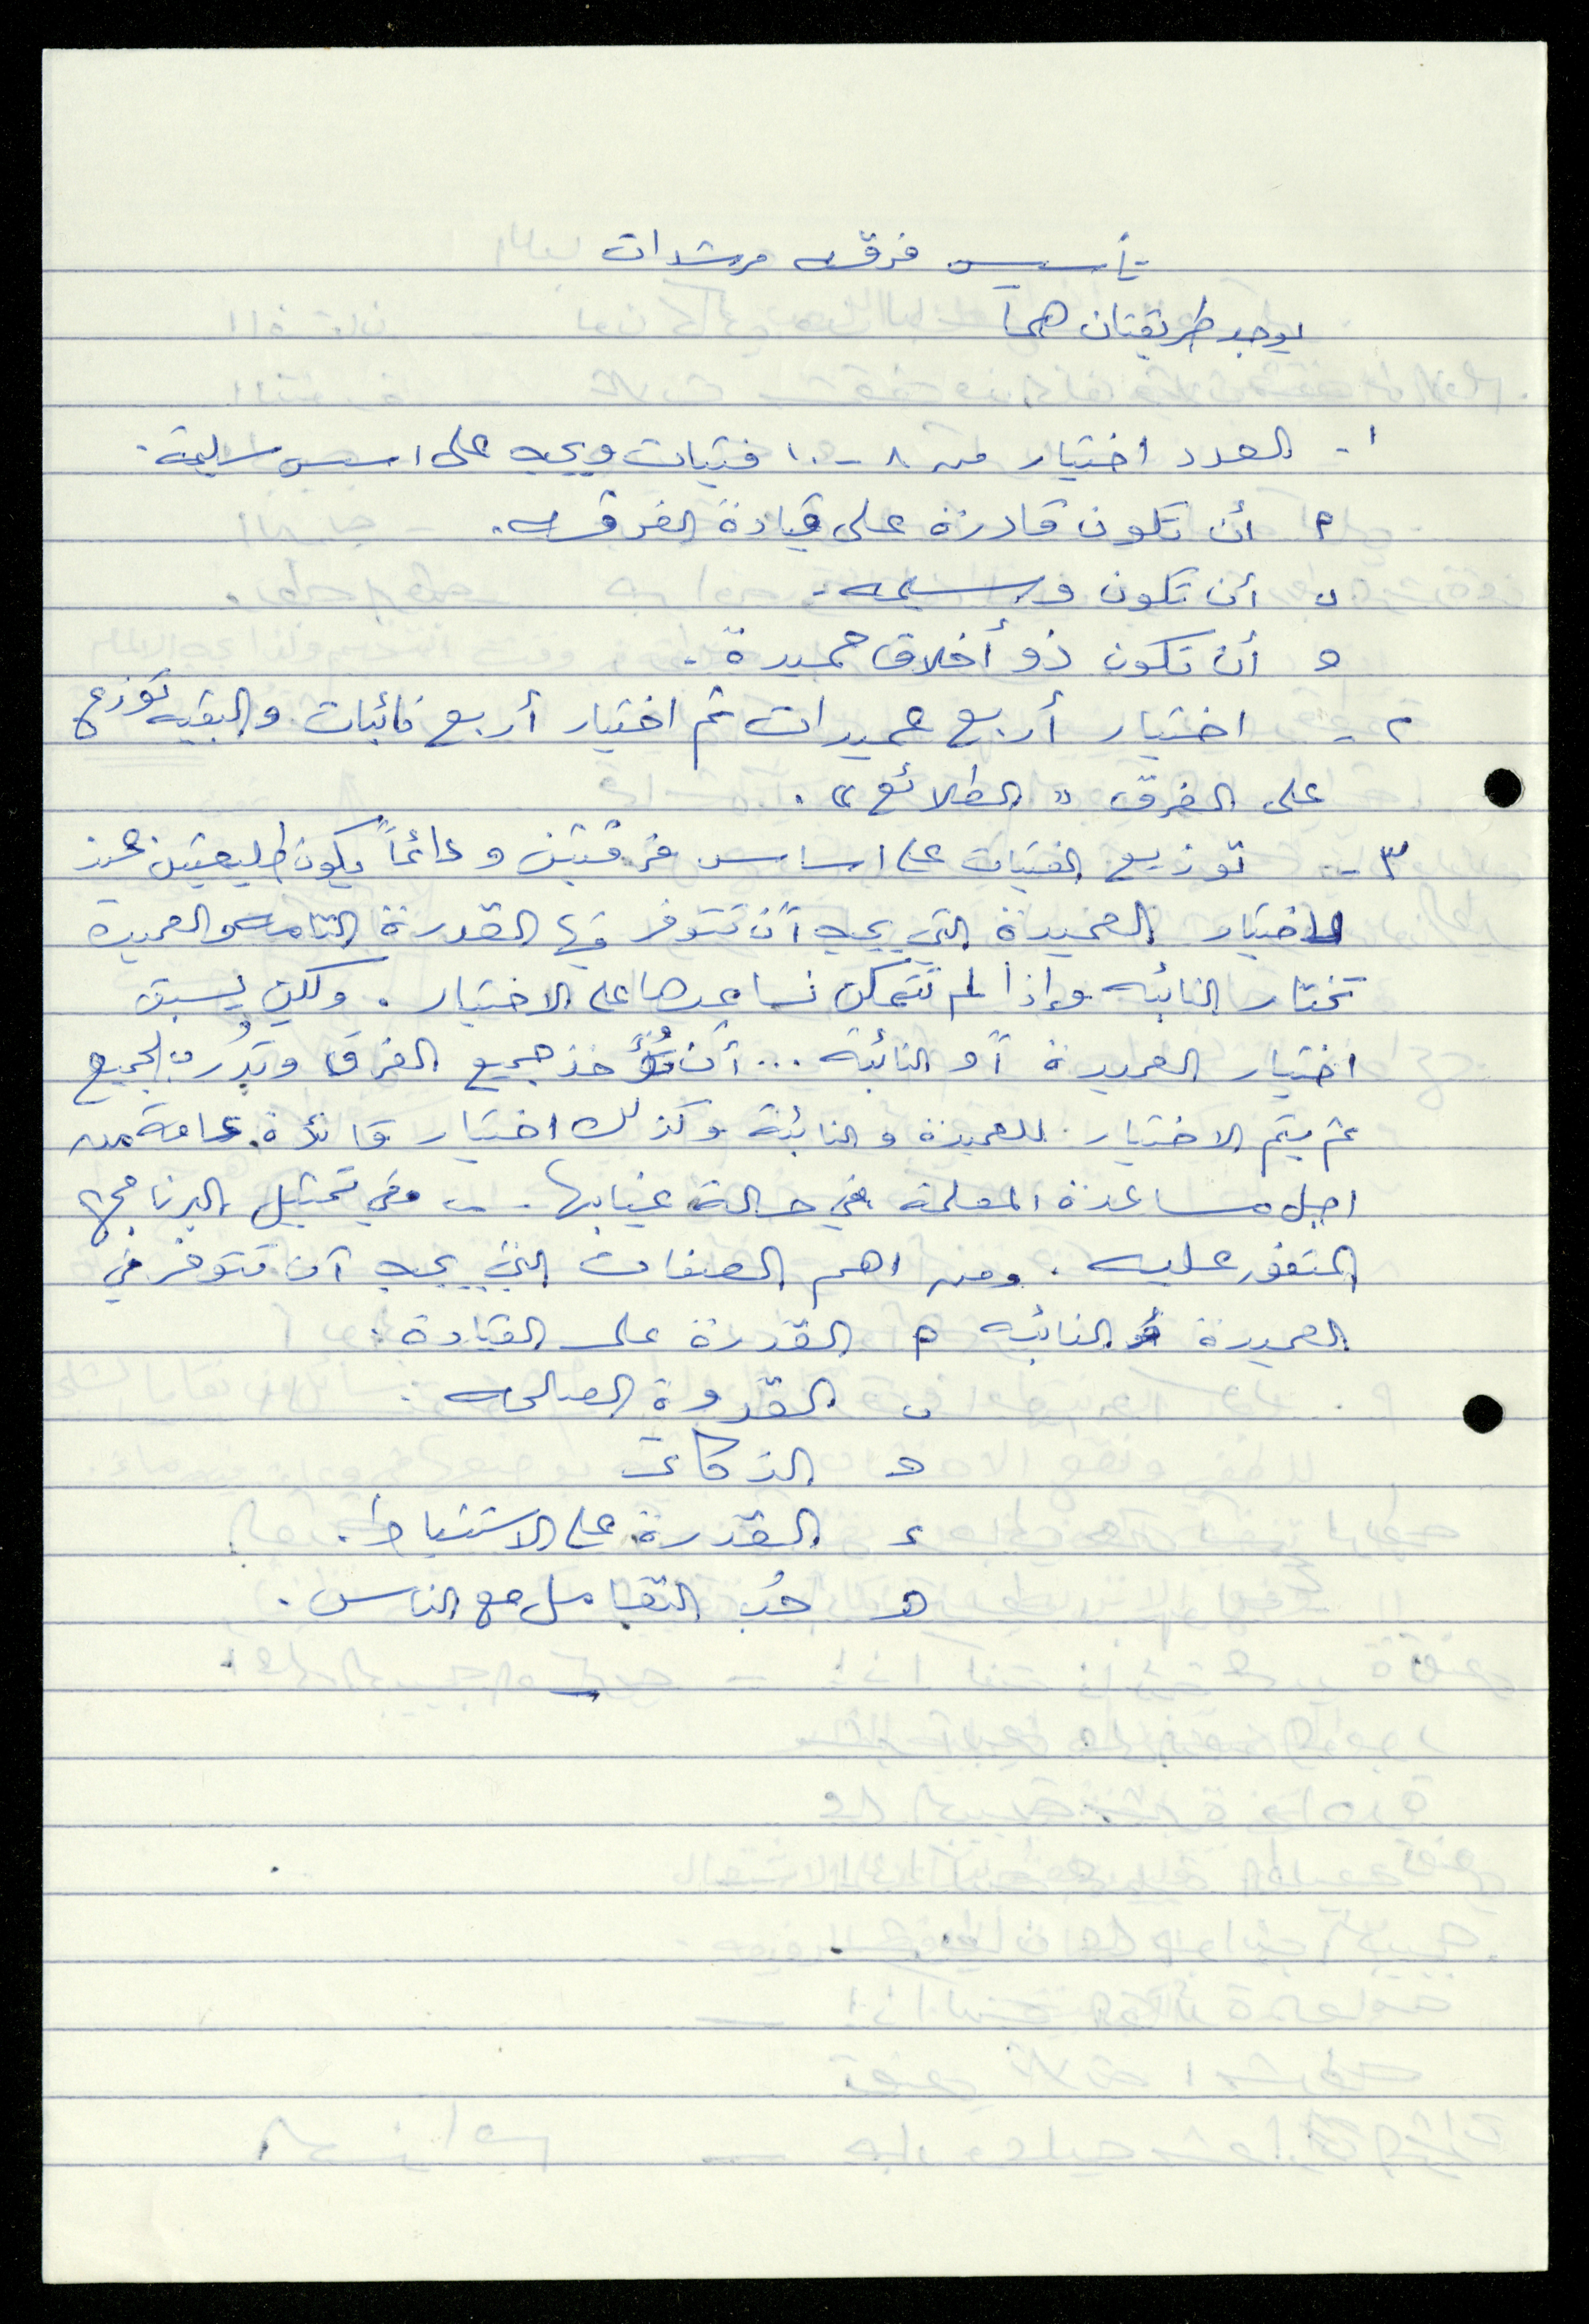 تأسيس فرقه مرشدات
يوجد طريقتان هما
١- العدد اختيار من ٨ - ١٠ فتيات ويجب على اسس سليمة.
أ أن تكون قادرة على قيادة الفرقه.
ب أن تكون وسيمه.
ج أن تكون ذو أخلاق حميدة.
٢- اختيار أربع عميدات ثم اختيار أربع نائبات والبقيه توزع
على الفرق "الطلائع".
٣- توزيع الفتيات على اساس فرقتين ودائماً يكون طليعتين عند
اختيار العميدة التي يجب أن تتوفر فيها القدرة التامه والعميدة
تختار النائبه وإذا لم تتمكن نساعدها على الاختيار. ولكن يسبق
اختيار العميدة أو النائبة ... أن تُؤخذ جميع الفرق وتدرب الجميع
ثم يتم الاختيار للعميدة والنائبة وكذلك اختيار قائدة عامة من
اجل مساعدة المعلمة في حالة غيابها .. وفي تمثيل البرنامج
المتفق عليه. ومن اهم الصفات التي يجب أن تتوفر في
العميدة والنائبه أ القدرة على القيادة.
ب القدوة الصالحه.
ج الذكاء
د القدرة على الاستنباط.
هـ حُب التعامل مع الناس.